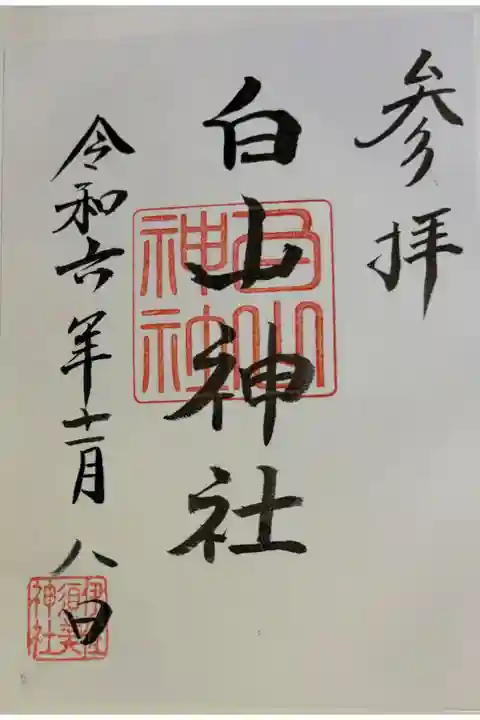 参拝
白山神社
白山神社
令和六年十一月八日
伊豆美神社